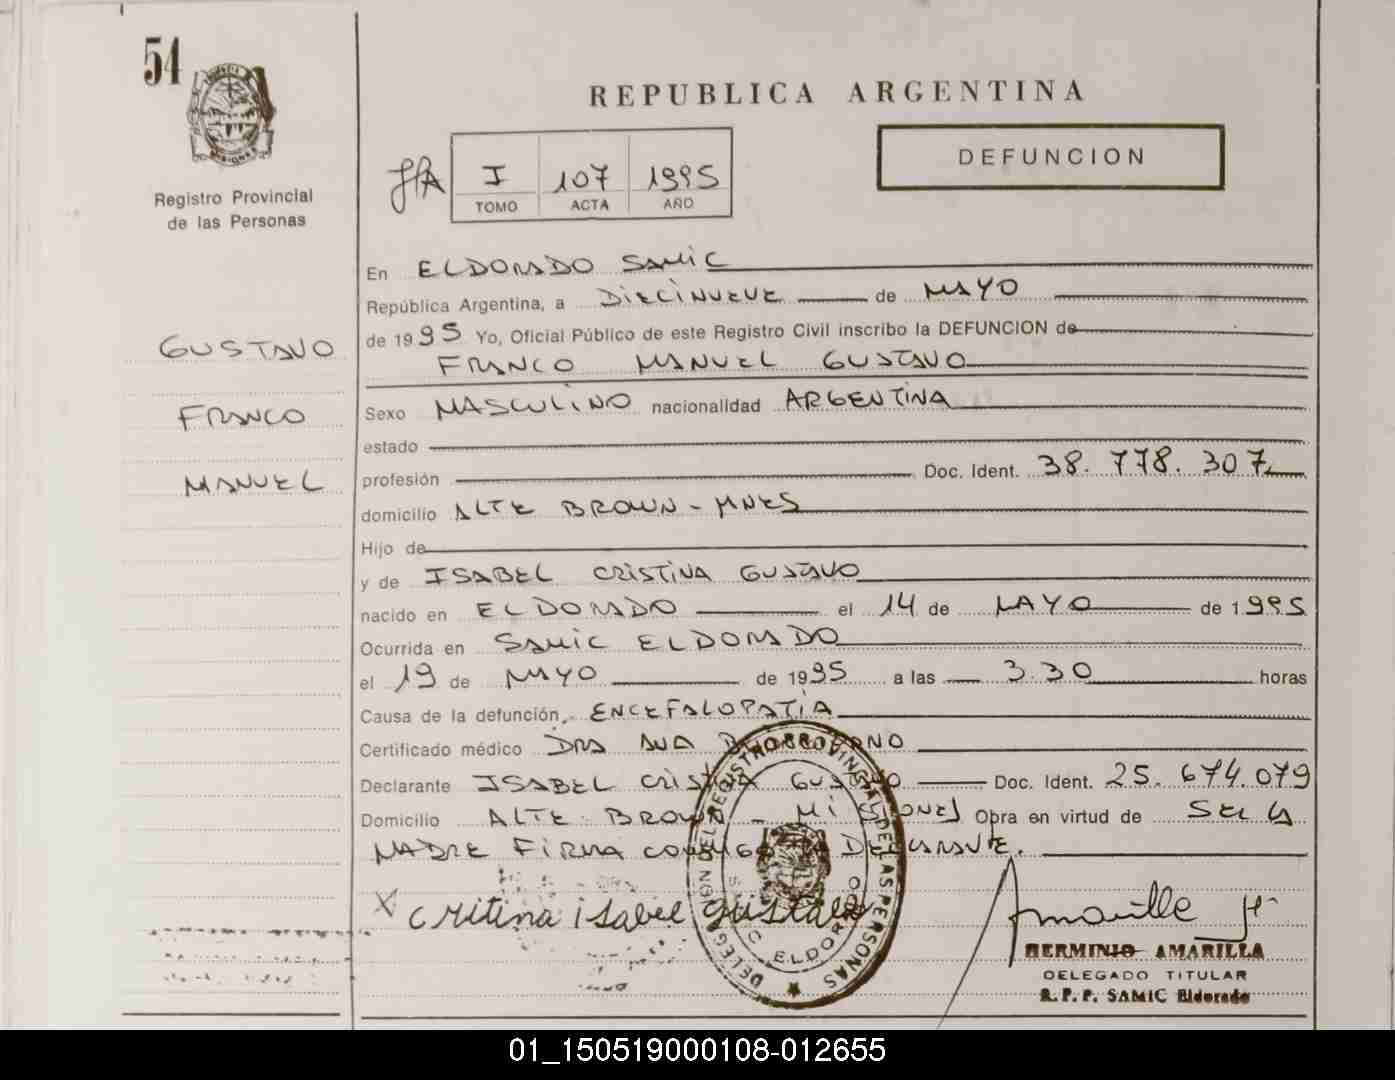 54
REPUBLICA ARGENTINA
DEFUNCION
I 107 1995
TOMO ACTA AÑO
PROVINCIA DE MISIONES
Registro Provincial
de las Personas
GUSTAVO
FRANCO
MANUEL
En ELDORADO SAMIC
República Argentina, a DIECINUEVE de MAYO
de 1995 Yo, Oficial Público de este Registro Civil inscribo la DEFUNCION de
FRANCO MANUEL GUSTAVO
Sexo MASCULINO nacionalidad ARGENTINA
estado
profesión Doc. Ident. 38.778.307
domicilio ALTE BROWN - MNES
Hijo de
y de ISABEL CRISTINA GUSTAVO
nacido en ELDORADO el 14 de MAYO de 1995
Ocurrida en SAMIC ELDORADO
el 19 de MAYO de 1995 a las 3.30 horas
Causa de la defunción, ENCEFALOPATÍA
Certificado médico DRA ANA
Declarante ISABEL CRISTINA GUSTAVO Doc. Ident. 25.674.079
Domicilio ALTE BROWN - MISIONES Obra en virtud de SER LA
MADRE FIRMA CONMIGO LA DECLARANTE.
X Critina isabel Gustavo
DELEGACION DEL REGISTRO PROVINCIAL DE LAS PERSONAS
SAMIC ELDORADO
Amarilla H
HERMINIO AMARILLA
DELEGADO TITULAR
R.P.P. SAMIC Eldorado
01_150519000108-012655